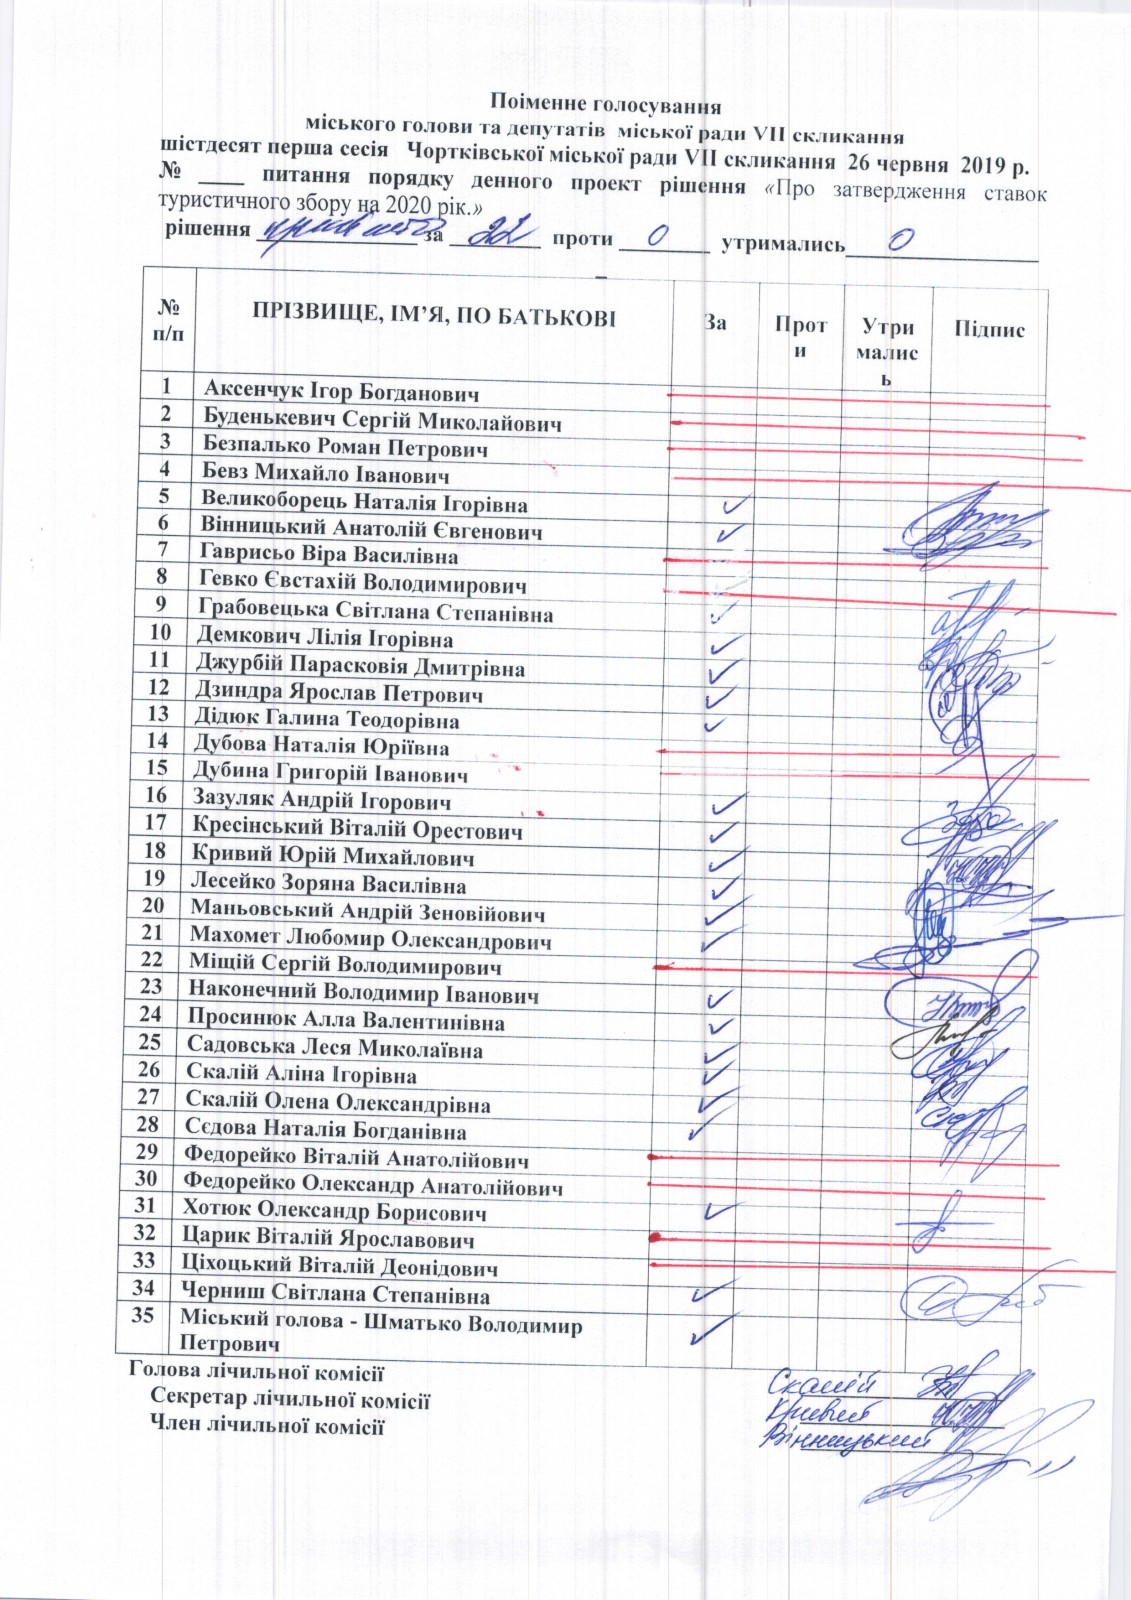 Поіменне голосування
міського голови та депутатів міської ради VII скликання
шістдесят перша сесія Чортківської міської ради VII скликання 26 червня 2019 р.
№ ____ питання порядку денного проект рішення «Про затвердження ставок
туристичного збору на 2020 рік.»
рішення прийнято за 22 проти 0 утримались 0
№ п/п ПРІЗВИЩЕ, ІМ’Я, ПО БАТЬКОВІ За Проти Утримались Підпис
1 Аксенчук Ігор Богданович
2 Буденькевич Сергій Миколайович
3 Безпалько Роман Петрович
4 Бевз Михайло Іванович
5 Великоборець Наталія Ігорівна ✓
6 Вінницький Анатолій Євгенович ✓
7 Гаврисьо Віра Василівна
8 Гевко Євстахій Володимирович
9 Грабовецька Світлана Степанівна ✓
10 Демкович Лілія Ігорівна ✓
11 Джурбій Парасковія Дмитрівна ✓
12 Дзиндра Ярослав Петрович ✓
13 Дідюк Галина Теодорівна ✓
14 Дубова Наталія Юріївна
15 Дубина Григорій Іванович
16 Зазуляк Андрій Ігорович ✓
17 Кресінський Віталій Орестович ✓
18 Кривий Юрій Михайлович ✓
19 Лесейко Зоряна Василівна ✓
20 Маньовський Андрій Зеновійович ✓
21 Махомет Любомир Олександрович ✓
22 Міщій Сергій Володимирович
23 Наконечний Володимир Іванович ✓
24 Просинюк Алла Валентинівна ✓
25 Садовська Леся Миколаївна ✓
26 Скалій Аліна Ігорівна ✓
27 Скалій Олена Олександрівна ✓
28 Сєдова Наталія Богданівна ✓
29 Федорейко Віталій Анатолійович
30 Федорейко Олександр Анатолійович
31 Хотюк Олександр Борисович ✓
32 Царик Віталій Ярославович
33 Ціхоцький Віталій Деонідович
34 Черниш Світлана Степанівна ✓
35 Міський голова - Шматько Володимир ✓
Петрович
Голова лічильної комісії Скалій
Секретар лічильної комісії Кривий
Член лічильної комісії Вінницький